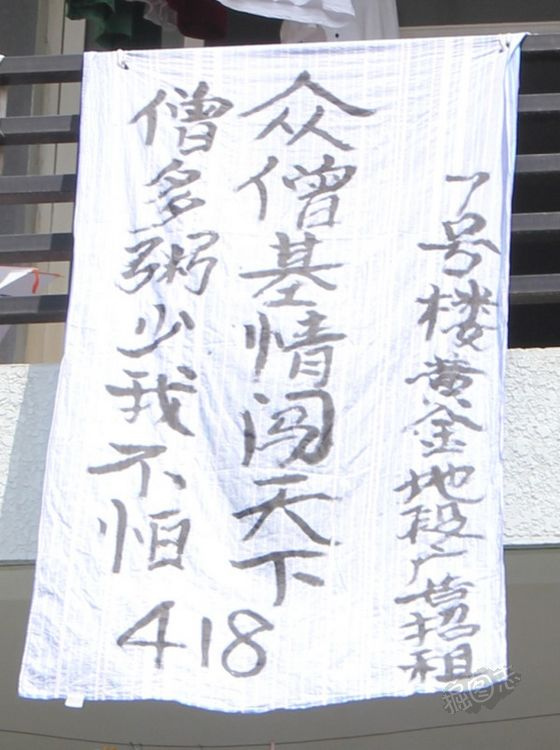 7号楼黄金地段广告招租
众僧基情闯天下
僧多粥少我不怕
418
掘图志